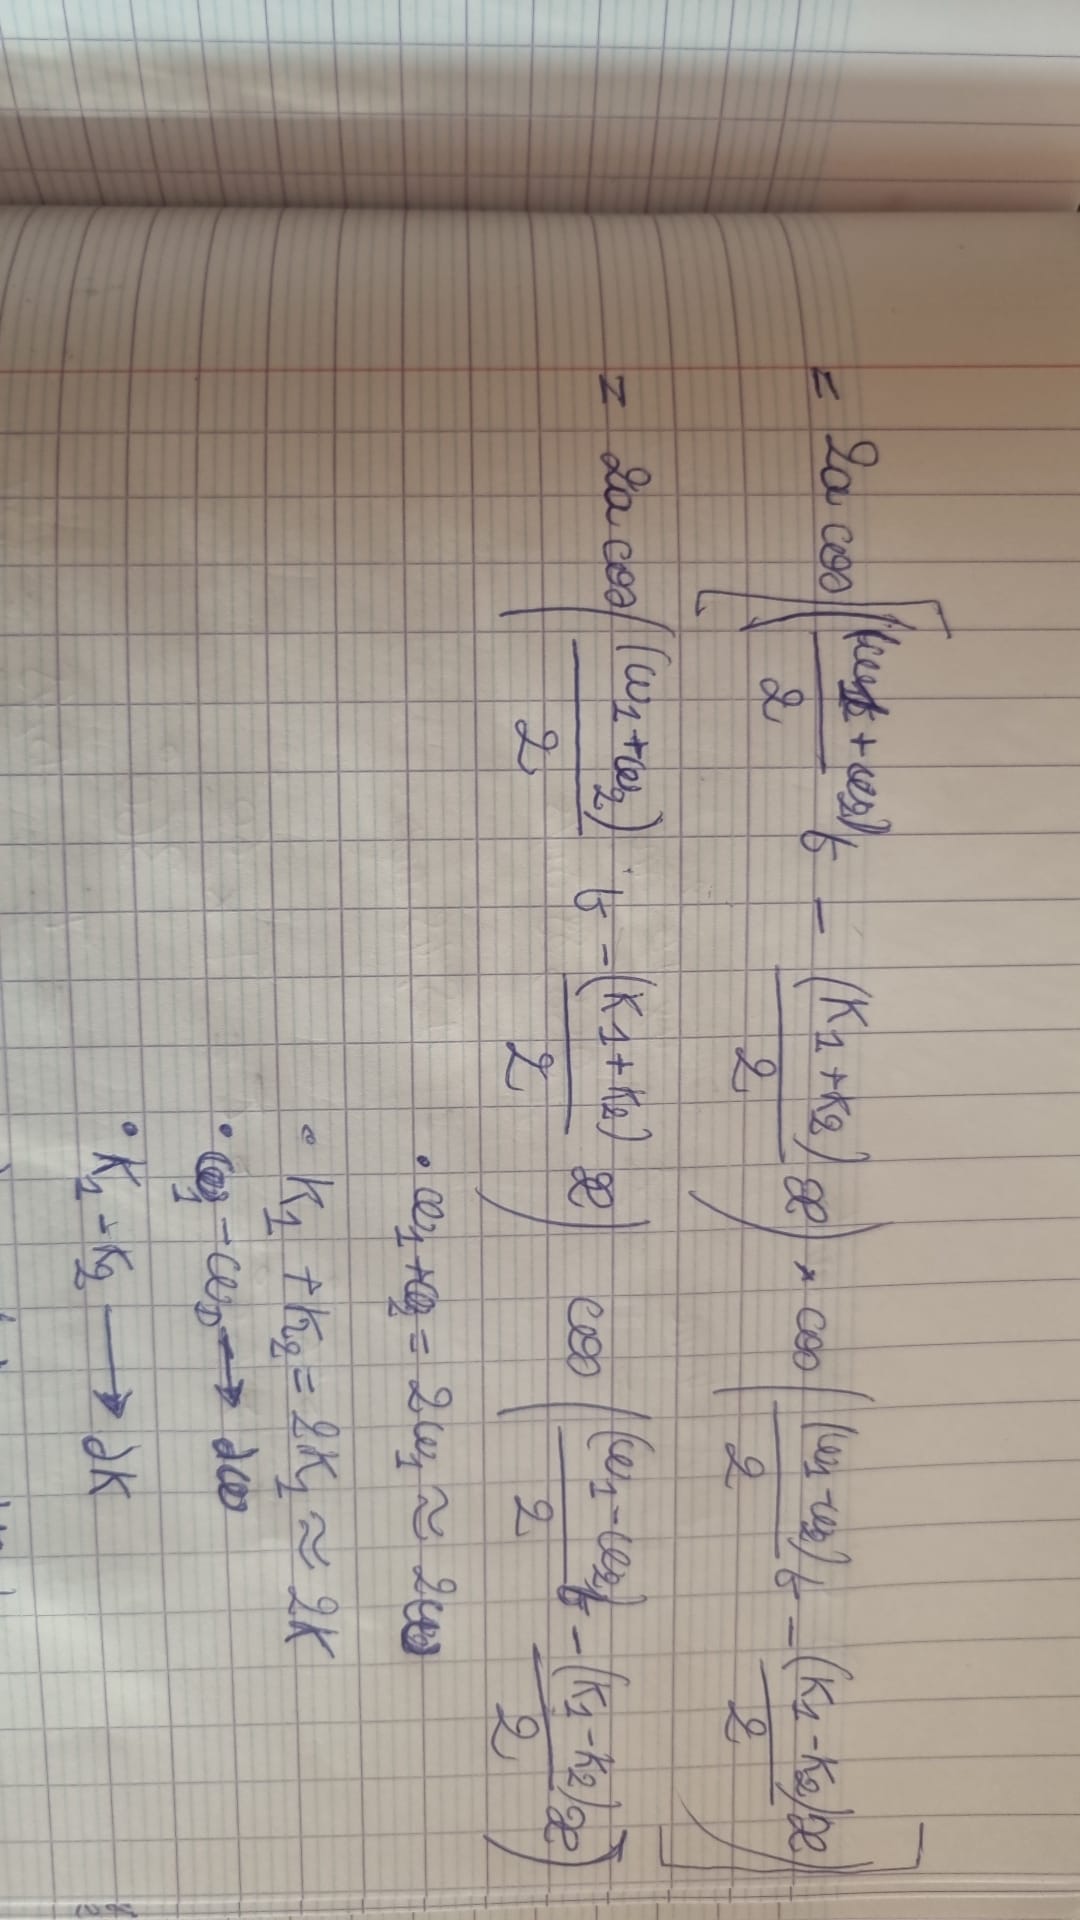 = 2a cos[((ω1+ω2)/2 t - (K1+K2)/2 x) × cos((ω1-ω2)/2 t - (K1-K2)/2 x)]
= 2a cos((ω1+ω2)/2 t - (K1+K2)/2 x) cos((ω1-ω2)/2 t - (K1-K2)/2 x)
• ω1+ω2 = 2ω1 ≈ 2ω
• K1 + K2 = 2K1 ≈ 2K
• ω1 - ω2 → ∂ω
• K1 - K2 → ∂K